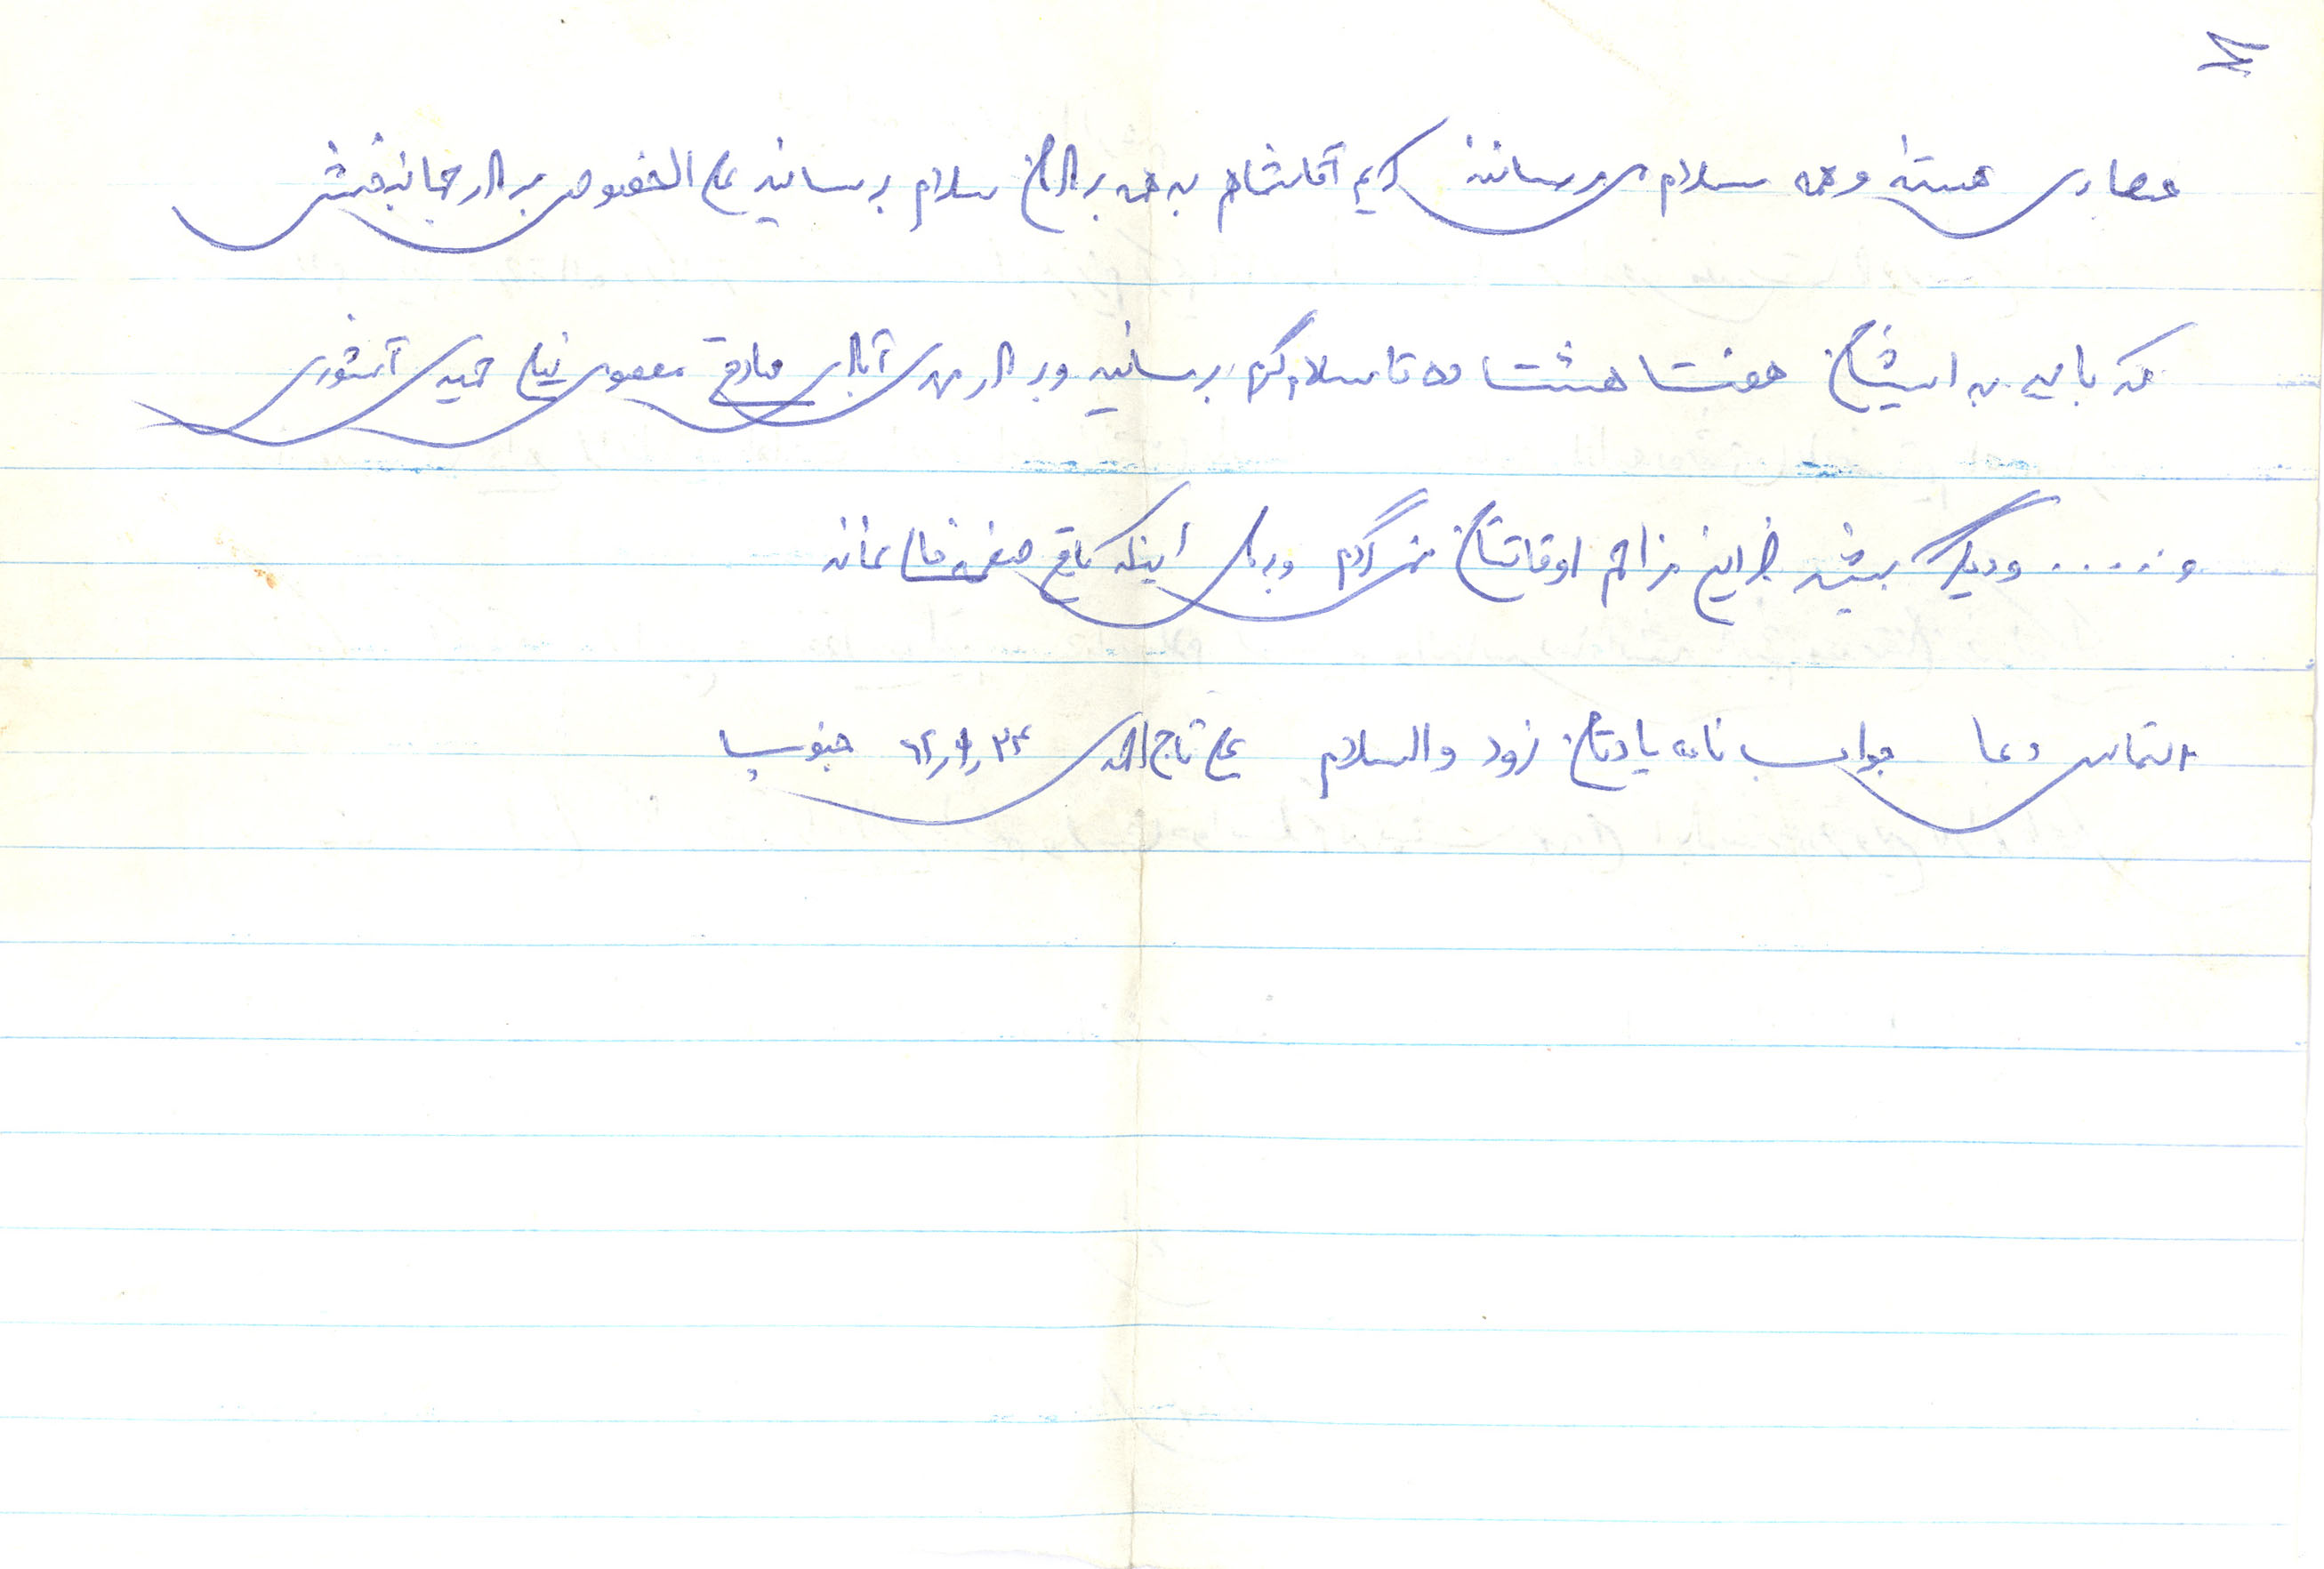 هستند و همه سلام می‌رسانند کریم آقا شما هم به همه برادران سلام برسانید علی الخصوص برادر جهانبخش
که باید به ایشان هفتا هشتا ده تا سلام گرم برسانید و برادر مهدی آبادی صادقی معصومی نیا حمیدی آشوری
و ..... و دیگر بیش از این مزاحم اوقاتتان نمی گردم و برای اینکه باقی صفحه خالی نماند
التماس دعا جواب نامه یادتان نرود والسلام علی تاج الدی جنوب